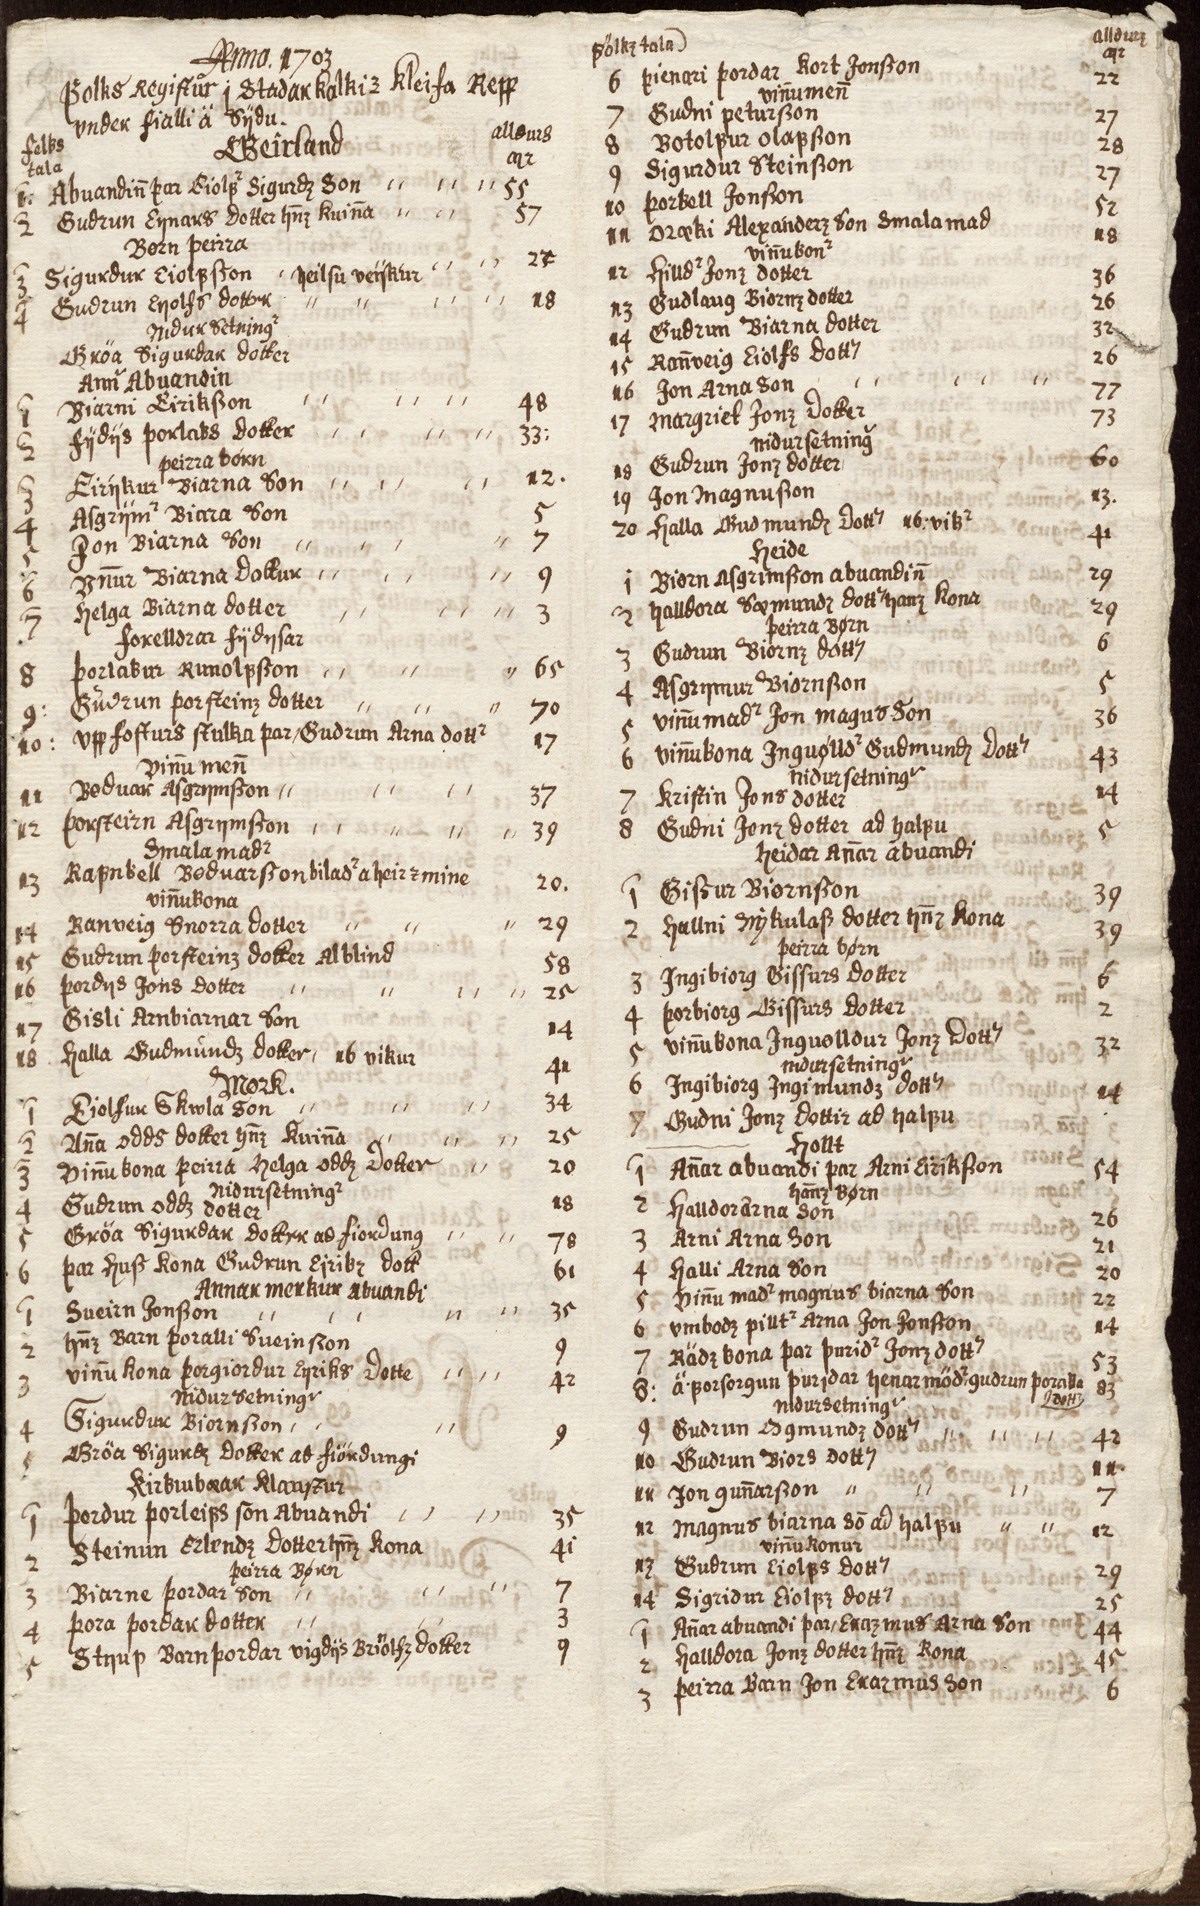 Anno. 1703
Folks Registur j Stadarhalki z Kleifa Repp
under fialli ä Sÿdu.
folks tala
Geirland
alldurs ar
1: Abuandin̄ þar Eiolfr Sigurdz Son 55
2 Gudrun Eÿnars dotter hn̄z kuin̄a 57
Børn þeirra
3 Sigurdur Eiolfsson heilsu veÿkur 24
4 Gudrun Eÿolfs dotter 18
Nidur Setningr
Gröa Sigurdar dotter
Annr Abuandin
1 Biarni Eiriksson 48
2 fÿdÿs þorlaks dotter 33:
þeirra børn
3 Eirÿkur Biarna Son 12.
4 Asgrÿmr Biara Son 5
5 Jon Biarna Son 7
6 Vn̄ur Biarna dottur 9
7 Helga Biarna dotter 3
forelldrar fÿdÿsar
8 þorlakur Runolfsson 65
9: Gudrun þorsteinz dotter 70
10: Vpp fosturs stulka þar Gudrun Arna dottr 17
Vin̄u men̄
11 Bøduar Asgrÿmsson 37
12 þorsteirn Asgrÿmsson 39
Smala madr
13 Rafnkell Bøduarsson biladr a heir z mine 20.
vin̄ukona
14 Ranveig Snorra dotter 29
15 Gudrun þorsteinz dotter Alblind 58
16 þordÿs Jons dotter 25
17 Gisli Arnbiarnar Son 14
18 Halla Gudmundz dotter, 16 vikur 41
Mørk.
1 Eiolfur Skula Son 34
2 An̄a odds dotter hn̄z kuin̄a 25
3 Vin̄ukona þeirra Helga oddz Dotter 20
Nidursetningr
4 Gudrun oddz dotter 18
5 Gröa Sigurdar dotter ad fiordung 78
6 þar huss kona Gudrun Eirikz dott 61
Annar merkur abuandi
1 Sueirn Jonsson 35
2 hn̄z Barn þoralli Sueinsson 9
3 vin̄u kona þorgiordur Eÿriks Dotte 42
Nidur Setningr
4 Sigurdur Biornsson 9
5 Gröa Sigurdz Dotter ad fiördungi
Kirkiubæar Klaustur
1 þordur þorleifs son Abuandi 35
2 Steinun Erlendz Dotter hn̄z Kona 41
þeirra Børn
3 Biarne þordar Son 7
4 þora þordar dotter 3
5 Stÿup Barn þordar vigdÿs Briölfz dotter 9
fölkz tala
alldurz ar
6 þienari þordar Kort Jonsson 22
vin̄umen̄
7 Gudni petursson 27
8 Botolfur olafsson 28
9 Sigurdur Steinsson 27
10 þorkell Jonsson 52
11 Oræki Alexanderz Son Smala mad 18
vin̄ukonr
12 Hilldr Jonz dotter 36
13 Gudlaug Biornz dotter 26
14 Gudrun Biarna dotter 32
15 Ran̄veig Eiolfs dottr 26
16 Jon Arna Son 77
17 Margriet Jonz Dotter 73
nidursetningr
18 Gudrun Jonz dotter 60
19 Jon Magnusson 13.
20 Halla Gudmundz Dottr 16. vikr 41
Heide
1 Biorn Asgrimsson abuandin̄ 29
2 Halldora Sæmundz dottr hanz Kona 29
þeirra Børn
3 Gudrun Biornz dottr 6
4 Asgrÿmur Biornsson 5
5 vin̄u madr Jon magus Son 36
6 vin̄ukona Inguølldr Gudmundz Dottr 43
nidursetningr
7 Kristin Jons dotter 14
8 Gudni Jonz dotter ad halfu 5
Heidar An̄ar abuandi
1 Gissur Biornsson 39
2 Hallni Nÿkulass dotter hn̄z Kona 39
þeirra børn
3 Ingibiorg Gissurs Dotter 6
4 þorbiorg Gissurs Dotter 2
5 vin̄ukona Inguolldur Jonz Dottr 32
nidursetningr
6 Ingibiorg Ingimundz dottr 14
7 Gudni Jonz dottir ad halfu
Hollt
1 An̄ar abuandi þar Arni Eiriksson 54
han̄z Børn
2 Halldor arna son 26
3 Arni Arna Son 21
4 Halli Arna Son 20
5 Vin̄u madr magnus biarna Son 22
6 vmbodz piltr Arna Jon Jonsson 14
7 Rädz kona þar þuridr Jonz dottr 53
8: ä forsorgun þuridar hennar mödr gudrun þoraka dottr 83
nidursetningr
9 Gudrun Ogmundz dottr 42
10 Gudrun Biors dottr 11.
11 Jon gun̄arsson 7
12 Magnus biarna sō ad halfu 12
vin̄ukonur
13 Gudrun Eiolfs dottr 29
14 Sigridur Eiolfz dottr 25
1 An̄ar abuandi þar Erazmus Arna Son 44
2 Halldora Jonz dotter hn̄z Kona 45
3 þeirra Barn Jon Erazmus Son 6